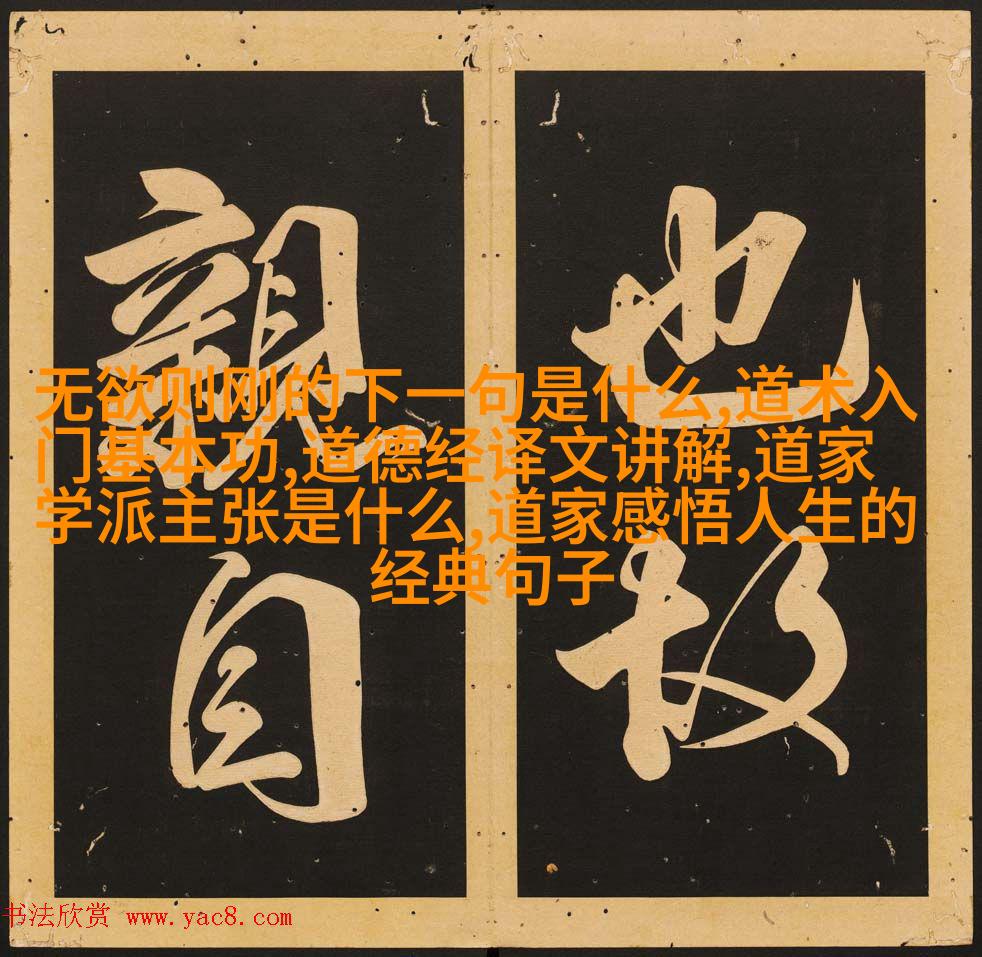 也故
親自
无欲则刚的下一句是什么,道术入
门基本功,道德经译文讲解,道家
学派主张是什么,道家感悟人生的
经典句子
书法欣赏 www.yac8.com